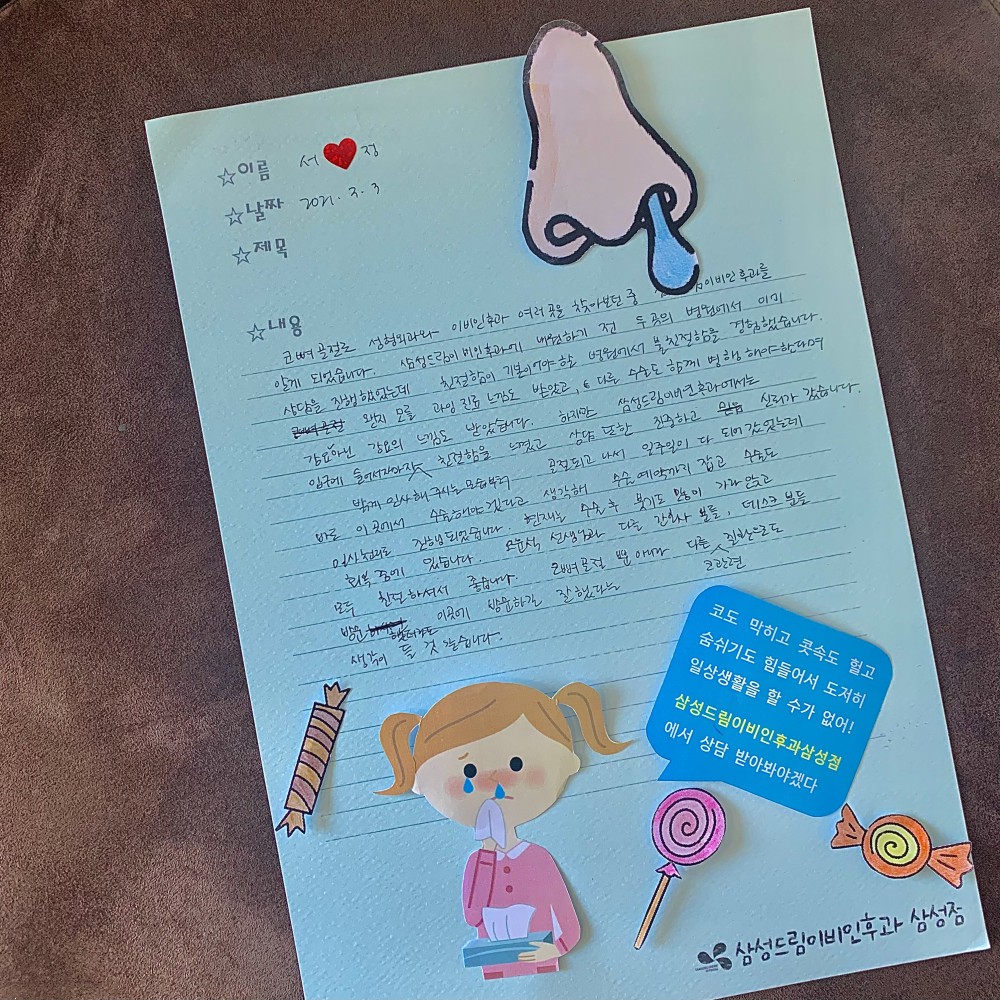 ☆이름 서 ♥ 정
☆날짜 2021. 3. 3
☆제목
☆내용
코뼈 골절로 성형외과와 이비인후과 여러 곳을 찾아보던 중 이비인후과를
알게 되었습니다. 삼성드림이비인후과에 내원하기 전 두 곳의 병원에서 이미
상담을 진행했었는데 친절함이 기본이어야 할 병원에서 불친절함을 경험했습니다.
코뼈골절 왠지 모를 과잉 진료 느낌도 받았고, 다른 수술도 함께 병행 해야한다며
강요아닌 강요의 느낌도 받았습니다. 하지만 삼성드림이비인후과에서는
입구에 들어서자마자 친절함을 느꼈고 상담 또한 최중하고 믿음 신뢰가 갔습니다.
밝게 인사해주시는 모습부터 골절되고 나서 일주일이 다 되어 갔었는데
바로 이 곳에서 수술해야 겠다고 생각해 수술 예약까지 잡고 수술도
일사천리로 진행 되었습니다. 현재는 수술 후 붓기도 많이 가라앉고
회복 중에 있습니다. 선생님과 다른 간호사 분들, 데스크 분들
모두 친절하셔서 좋습니다. 코뼈골절 뿐 아니라 다른 질환으로도
코관련
방문 했더라도 이곳에 방문하길 잘했다는
생각이 들 것 같습니다.
코도 막히고 콧속도 헐고
숨쉬기도 힘들어서 도저히
일상생활을 할 수가 없어!
삼성드림이비인후과삼성점
에서 상담 받아봐야겠다
삼성드림이비인후과 삼성점